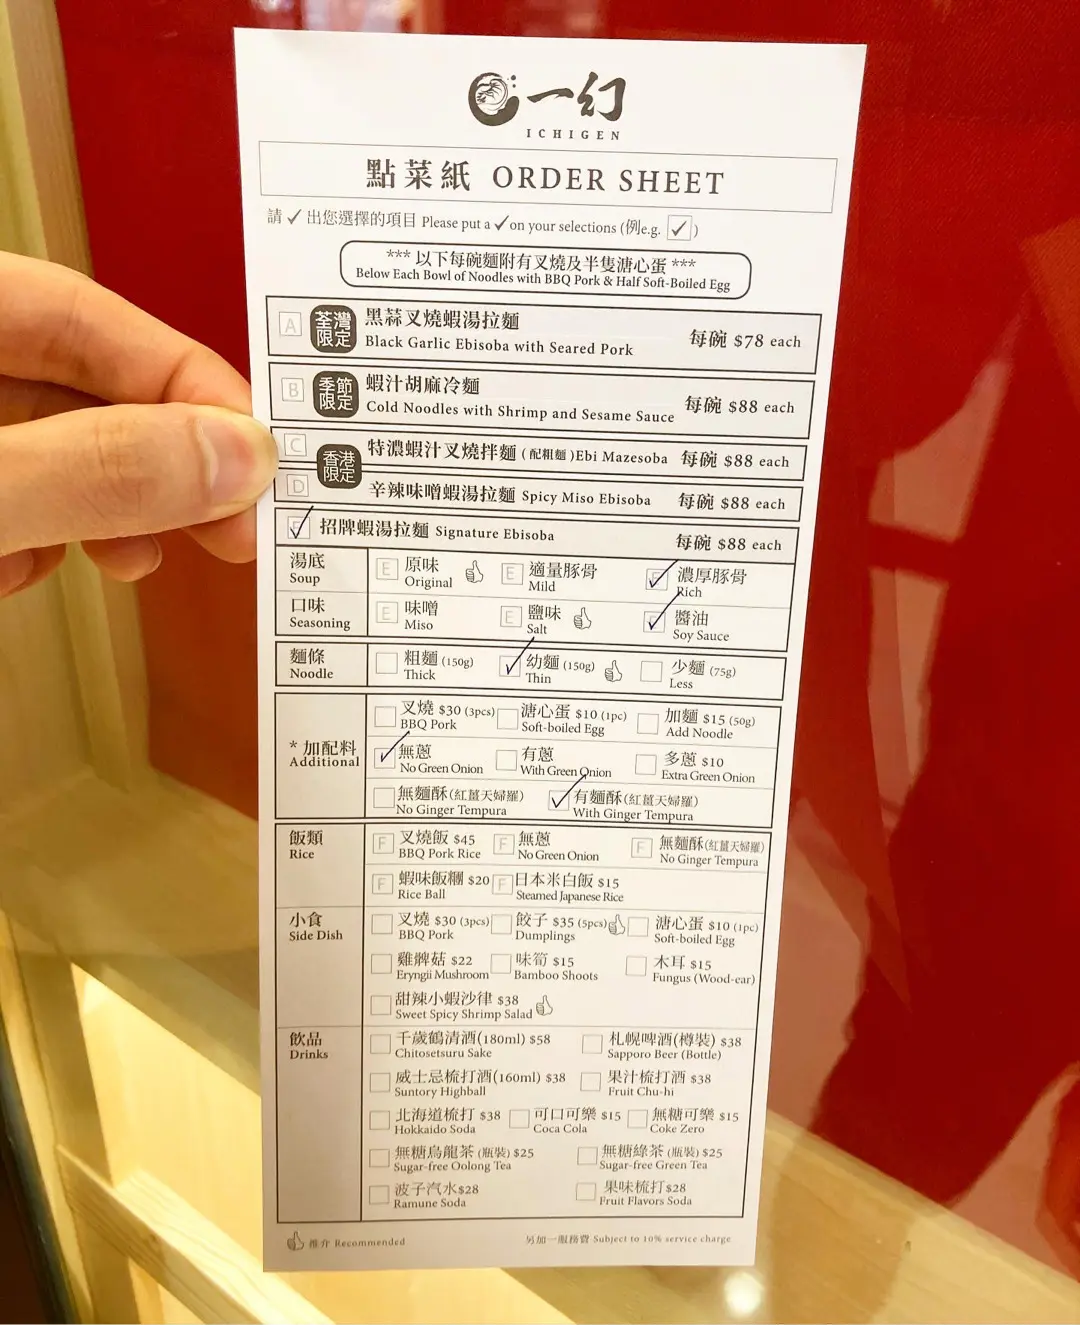 一幻
ICHIGEN
點菜紙 ORDER SHEET
請 ✓ 出您選擇的項目 Please put a ✓ on your selections (例e.g. ✓ )
*** 以下每碗麵附有叉燒及半隻溏心蛋 ***
Below Each Bowl of Noodles with BBQ Pork & Half Soft-Boiled Egg
A 荃灣限定 黑蒜叉燒蝦湯拉麵 每碗 $78 each
Black Garlic Ebisoba with Seared Pork
B 季節限定 蝦汁胡麻冷麵 每碗 $88 each
Cold Noodles with Shrimp and Sesame Sauce
C 香港限定 特濃蝦汁叉燒拌麵 ( 配粗麵 )Ebi Mazesoba 每碗 $88 each
D 辛辣味噌蝦湯拉麵 Spicy Miso Ebisoba 每碗 $88 each
✓ 招牌蝦湯拉麵 Signature Ebisoba 每碗 $88 each
湯底 E 原味 E 適量豚骨 ✓ 濃厚豚骨
Soup Original Mild Rich
口味 E 味噌 E 鹽味 ✓ 醬油
Seasoning Miso Salt Soy Sauce
麵條 粗麵 (150g) ✓ 幼麵 (150g) 少麵 (75g)
Noodle Thick Thin Less
叉燒 $30 (3pcs) 溏心蛋 $10 (1pc) 加麵 $15 (50g)
BBQ Pork Soft-boiled Egg Add Noodle
* 加配料 ✓ 無蔥 有蔥 多蔥 $10
Additional No Green Onion With Green Onion Extra Green Onion
無麵酥(紅薑天婦羅) ✓ 有麵酥(紅薑天婦羅)
No Ginger Tempura With Ginger Tempura
飯類 F 叉燒飯 $45 F 無蔥 F 無麵酥(紅薑天婦羅)
Rice BBQ Pork Rice No Green Onion No Ginger Tempura
F 蝦味飯糰 $20 F 日本米白飯 $15
Rice Ball Steamed Japanese Rice
小食 叉燒 $30 (3pcs) 餃子 $35 (5pcs) 溏心蛋 $10 (1pc)
Side Dish BBQ Pork Dumplings Soft-boiled Egg
雞髀菇 $22 味筍 $15 木耳 $15
Eryngii Mushroom Bamboo Shoots Fungus (Wood-ear)
甜辣小蝦沙律 $38
Sweet Spicy Shrimp Salad
飲品 千歲鶴清酒(180ml) $58 札幌啤酒(樽裝) $38
Drinks Chitosetsuru Sake Sapporo Beer (Bottle)
威士忌梳打酒(160ml) $38 果汁梳打酒 $38
Suntory Highball Fruit Chu-hi
北海道梳打 $38 可口可樂 $15 無糖可樂 $15
Hokkaido Soda Coca Cola Coke Zero
無糖烏龍茶 (瓶裝) $25 無糖綠茶 (瓶裝) $25
Sugar-free Oolong Tea Sugar-free Green Tea
波子汽水$28 果味梳打$28
Ramune Soda Fruit Flavors Soda
推介 Recommended 另加一服務費 Subject to 10% service charge